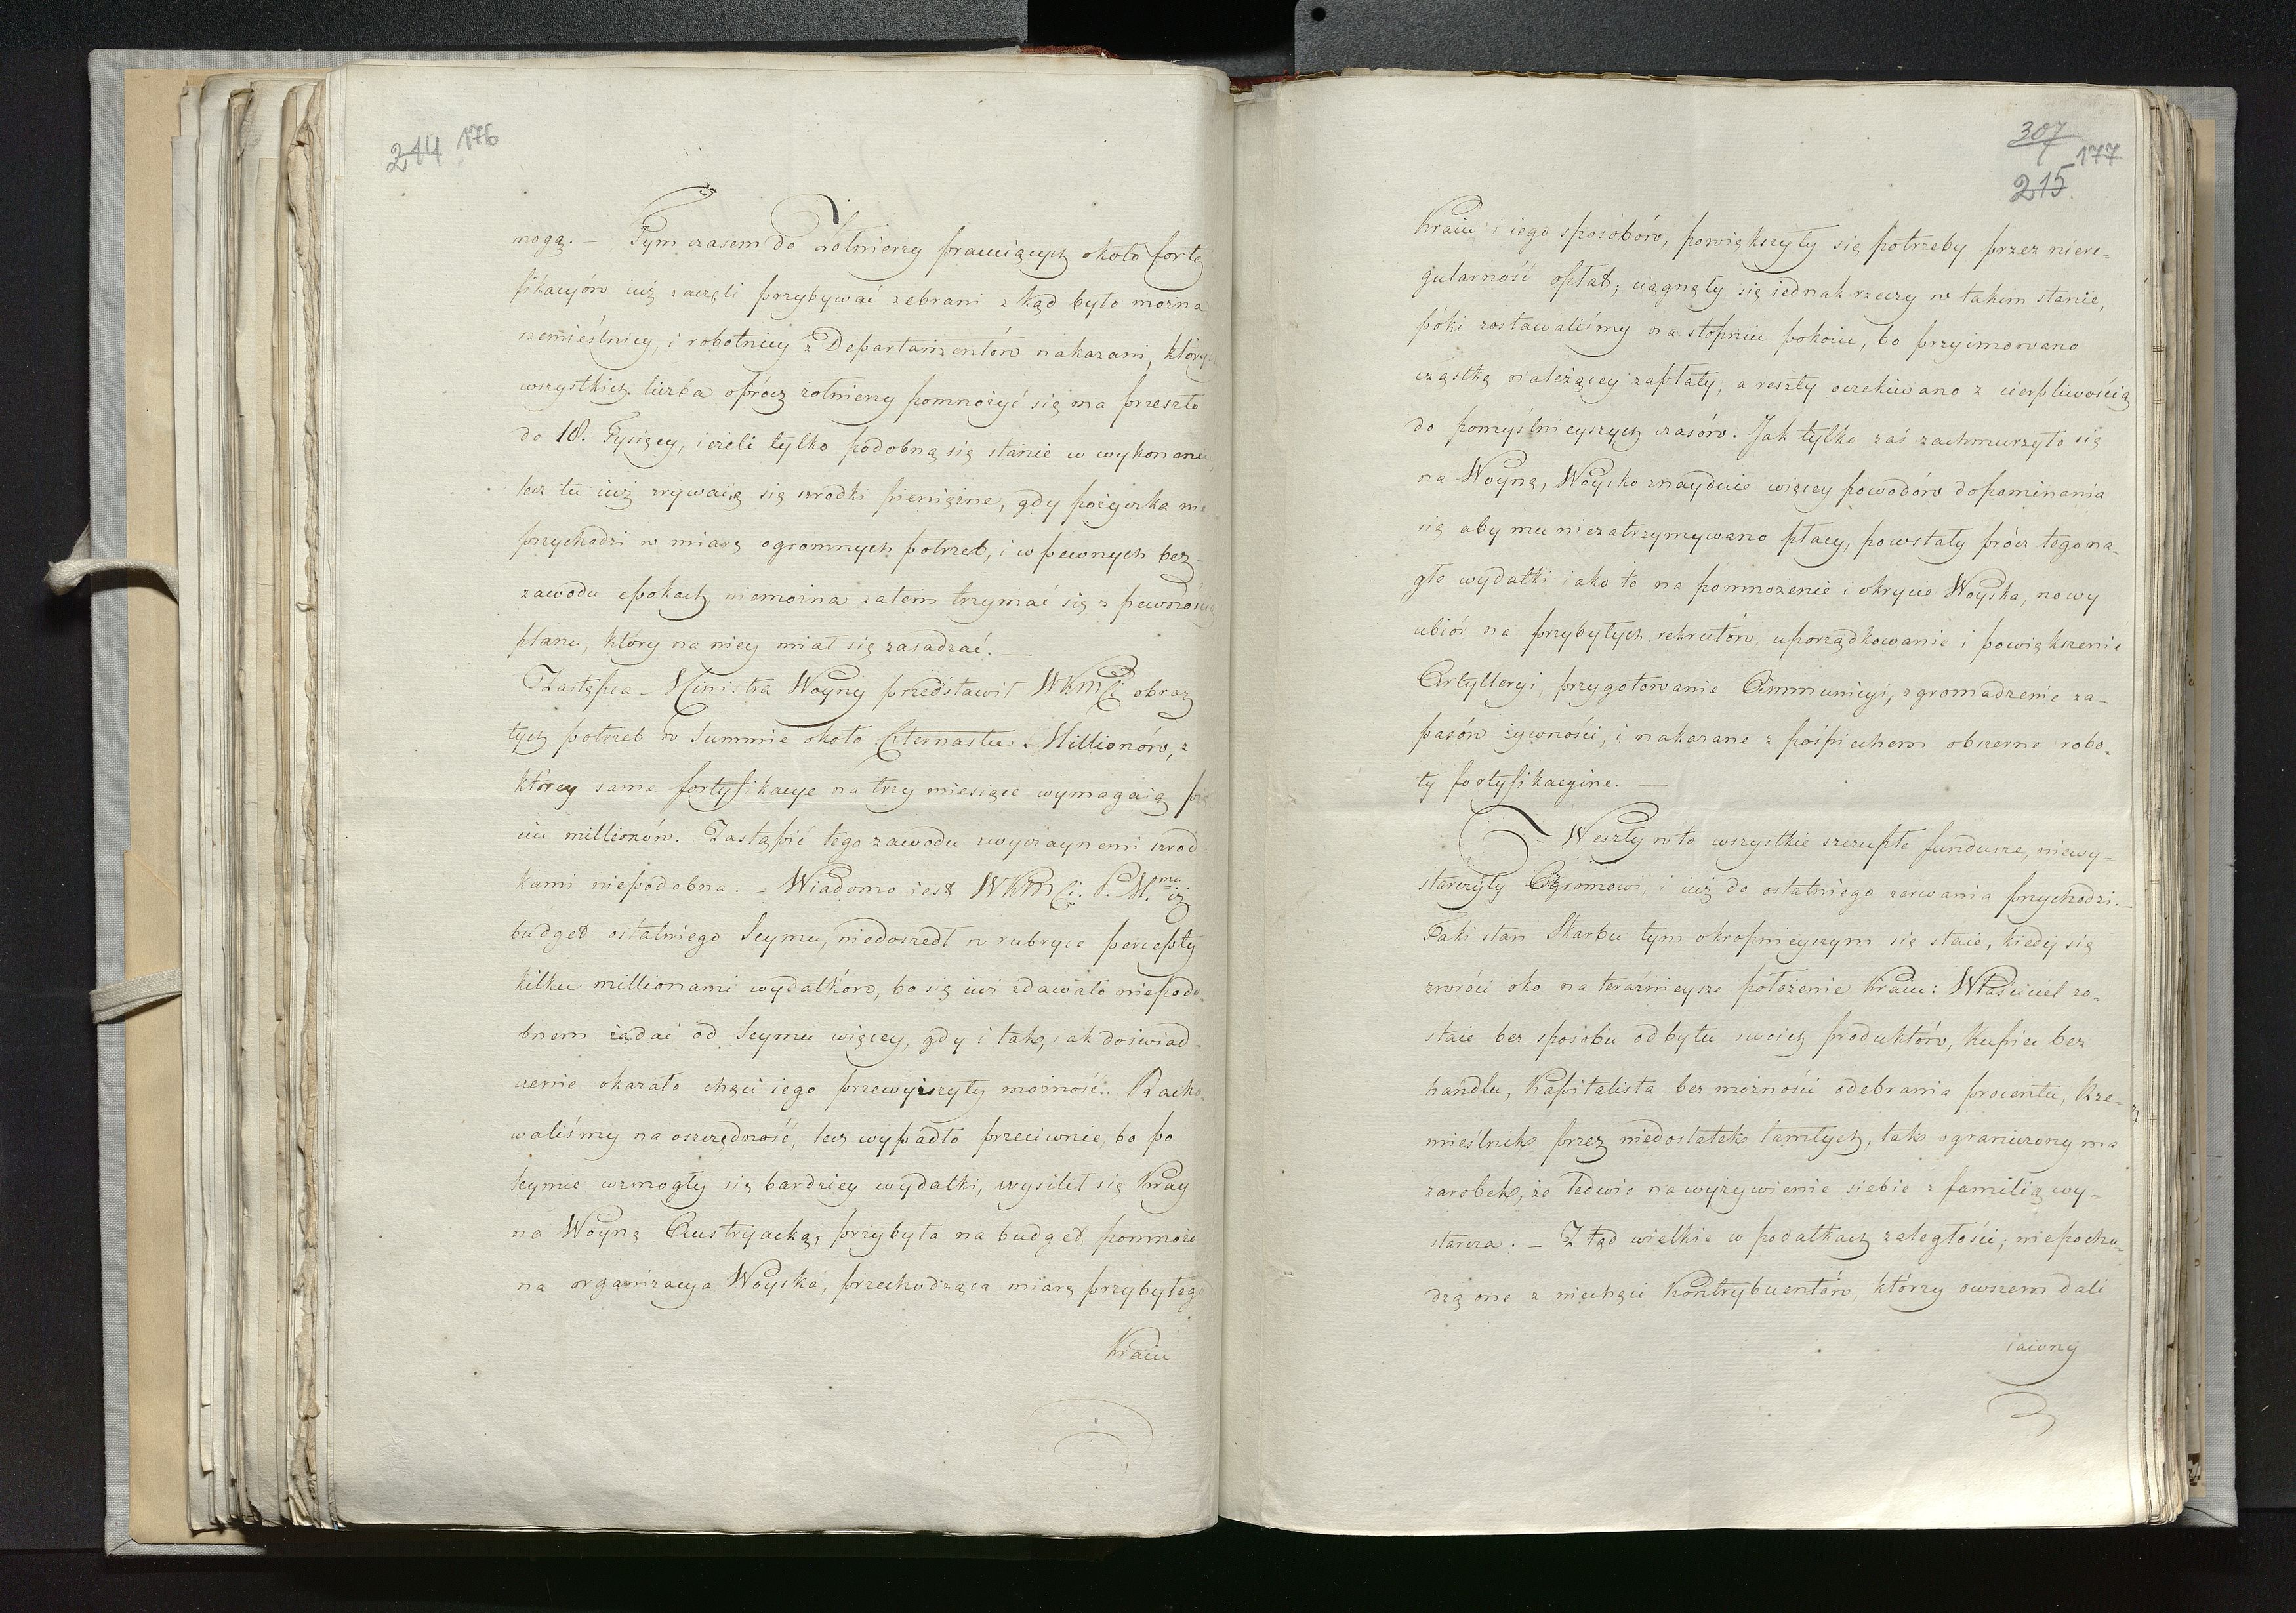 244 176
mogą. — Tym czasem do Żołnierzy pracuiących około forty
fikacyów iuż zaczęli przybywać zebrani z kąd było można
rzemieślnicy, i robotnicy z Departamentów nakazani, których
wszystkich liczba oprócz żołnierzy pomnożyć się ma przeszło
do 18. Tysięcy, ieżeli tylko podobną się stanie w wykonaniu,
lecz tu iuż zrywaią się srodki pieniężne, gdy pożyczka nie
przychodzi w miarę ogromnych potrzeb, i w pewnych bez
zawodu epokach, niemożna zatem trzymać się z pewnością
planu, który na niey miał się zasadzać. —
Zastępca Ministra Woyny przedstawił WKMCi obraz
tych potrzeb w Summie około Czternastu Millionów, z
którey same fortyfikacye na trzy miesiące wymagaią pię
ciu millionów. Zastąpić tego zawodu zwyczaynemi srod
kami niepodobna. – Wiadomo iest WKMCi. P. M.mu iż
budget ostatniego Seymu, niedoszedł w rubryce percepty
kilku millionami wydatków, bo się iuż zdawało niepodo-
bnem żądać od Seymu więcey, gdy i tak, iak doświad
czenie okazało chęci iego przewyższyły możność. Racho-
waliśmy na oszczędność, lecz wypadło przeciwnie, bo po
seymie wzmogły się bardziey wydatki, wysilił się Kray
na Woynę Austryacką, przybyła na budget pomnożo
na organizacya Woyska, przechodząca miarę przybyłego
Kraiu
307
177
215.
Kraiu i iego sposobów, powiększyły się potrzeby przez niere-
gularność opłat; ciągnęły się iednak rzeczy w takim stanie,
póki zostawaliśmy na stopniu pokoiu, bo przyimowano
cząstkę należącey zapłaty, a reszty oczekiwano z cierpliwością
do pomyślnieyszych czasów. Jak tylko zaś zachmurzyło się
na Woynę, Woysko znayduie więcey powodów dopominania
się aby mu niezatrzymywano płacy, powstały prócz tego na-
głe wydatki iako to na pomnożenie i okrycie Woyska, nowy
ubiór na przybyłych rekrutów, uporządkowanie i powiększenie
Artylleryi, przygotowanie Ammunicyi, zgromadzenie za-
pasów żywności, i nakazane z pośpiechem obszerne robo-
ty fortyfikacyine. —
Weszły w to wszystkie szczupłe fundusze, niewy-
starczyły Ogromowi, i iuż do ostatniego zerwania przychodzi. —
Taki stan Skarbu tym okropnieyszym się staie, kiedy się
zwróci oko na teraźnieysze położenie Kraiu: Właściciel zo-
staie bez sposobu odbytu swoich produktów, Kupiec bez
handlu, Kapitalista bez możności odebrania procentu, Rze-
mieślnik przez niedostatek tamtych, tak ograniczony ma
zarobek, że ledwie na wyżywienie siebie z familią wy-
starcza. — Z tąd wielkie w podatkach zaległości; niepocho-
dzą one z niechęci Kontrybuentów, którzy owszem dali
iawny